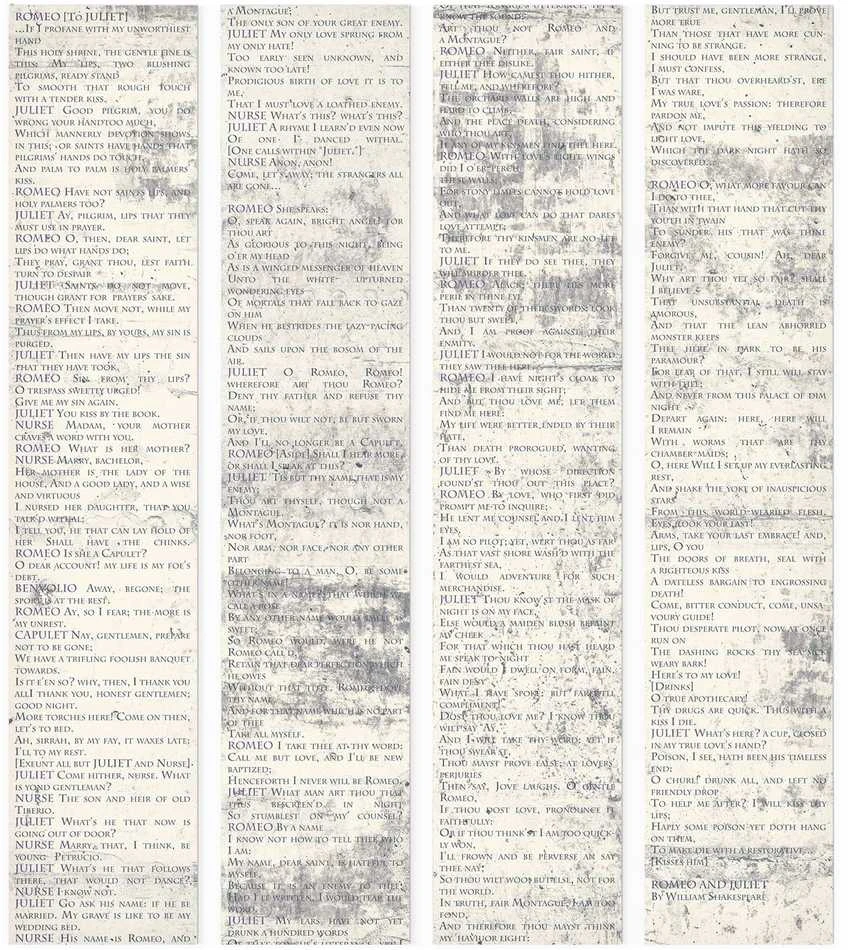 ROMEO [To JULIET]
...If I profane with my unworthiest
hand
This holy shrine, the gentle fine is
this: My lips, two blushing
pilgrims, ready stand
To smooth that rough touch
with a tender kiss.
JULIET Good pilgrim, you do
wrong your hand too much,
Which mannerly devotion shows
in this; or saints have hands that
pilgrims' hands do touch,
And palm to palm is holy palmers'
kiss.
ROMEO Have not saints lips, and
holy palmers too?
JULIET Ay, pilgrim, lips that they
must use in prayer.
ROMEO O, then, dear saint, let
lips do what hands do;
They pray, grant thou, lest faith
turn to despair
JULIET Saints do not move,
though grant for prayers' sake.
ROMEO Then move not, while my
prayer's effect I take.
Thus from my lips, by yours, my sin is
purged.
JULIET Then have my lips the sin
that they have took.
ROMEO Sin from thy lips?
O trespass sweetly urged!
Give me my sin again.
JULIET You kiss by the book.
NURSE Madam, your mother
craves a word with you.
ROMEO What is her mother?
NURSE Marry, bachelor,
Her mother is the lady of the
house, And a good lady, and a wise
and virtuous
I nursed her daughter, that you
talk'd withal;
I tell you, he that can lay hold of
her Shall have the chinks.
ROMEO Is she a Capulet?
O dear account! my life is my foe's
debt.
BENVOLIO Away, begone; the
sport is at the best.
ROMEO Ay, so I fear; the more is
my unrest.
CAPULET Nay, gentlemen, prepare
not to be gone;
We have a trifling foolish banquet
towards.
Is it e'en so? why, then, I thank you
all I thank you, honest gentlemen;
good night.
More torches here! Come on then,
let's to bed.
Ah, sirrah, by my fay, it waxes late:
I'll to my rest.
[Exeunt all but JULIET and Nurse]
JULIET Come hither, nurse. What
is yond gentleman?
NURSE The son and heir of old
Tiberio.
JULIET What's he that now is
going out of door?
NURSE Marry, that, I think, be
young Petrucio.
JULIET What's he that follows
there, that would not dance?
NURSE I know not.
JULIET Go ask his name: if he be
married. My grave is like to be my
wedding bed.
NURSE His name is Romeo, and
a Montague;
The only son of your great enemy.
JULIET My only love sprung from
my only hate!
Too early seen unknown, and
known too late!
Prodigious birth of love it is to
me,
That I must love a loathed enemy.
NURSE What's this? what's this?
JULIET A rhyme I learn'd even now
Of one I danced withal.
[One calls within "Juliet."]
NURSE Anon, anon!
Come, let's away; the strangers all
are gone...
ROMEO She speaks:
O, speak again, bright angel! for
thou art
As glorious to this night, being
o'er my head
As is a winged messenger of heaven
Unto the white upturned
wondering eyes
Of mortals that fall back to gaze
on him
When he bestrides the lazy-pacing
clouds
And sails upon the bosom of the
air.
JULIET O Romeo, Romeo!
wherefore art thou Romeo?
Deny thy father and refuse thy
name;
Or, if thou wilt not, be but sworn
my love,
And I'll no longer be a Capulet.
ROMEO [Aside] Shall I hear more,
or shall I speak at this?
JULIET 'Tis but thy name that is my
enemy;
Thou art thyself, though not a
Montague.
What's Montague? it is nor hand,
nor foot,
Nor arm, nor face, nor any other
part
Belonging to a man, O, be some
other name!
What's in a name? that which we
call a rose
By any other name would smell as
sweet;
So Romeo would, were he not
Romeo call'd,
Retain that dear perfection which
he owes
Without that title. Romeo, doff
thy name,
And for that name which is no part
of thee
Take all myself.
ROMEO I take thee at thy word:
Call me but love, and I'll be new
baptized;
Henceforth I never will be Romeo.
JULIET What man art thou that
thus bescreen'd in night
So stumblest on my counsel?
ROMEO By a name
I know not how to tell thee who
I am:
My name, dear saint, is hateful to
myself,
Because it is an enemy to thee;
Had I it written, I would tear the
word.
JULIET My ears have not yet
drunk a hundred words
Of that tongue's utterance, yet I
know the sound:
Art thou not Romeo and
a Montague?
ROMEO Neither, fair saint, if
either thee dislike.
JULIET How camest thou hither,
tell me, and wherefore?
The orchard walls are high and
hard to climb,
And the place death, considering
who thou art,
If any of my kinsmen find thee here.
ROMEO With love's light wings
did I o'er-perch
these walls;
For stony limits cannot hold love
out,
And what love can do that dares
love attempt;
Therefore thy kinsmen are no let
to me.
JULIET If they do see thee, they
will murder thee.
ROMEO Alack, there lies more
peril in thine eye
Than twenty of their swords: look
thou but sweet,
And I am proof against their
enmity.
JULIET I would not for the world
they saw thee here.
ROMEO I have night's cloak to
hide me from their sight;
And but thou love me, let them
find me here:
My life were better ended by their
hate,
Than death prorogued, wanting
of thy love.
JULIET By whose direction
found'st thou out this place?
ROMEO By love, who first did
prompt me to inquire;
He lent me counsel and I lent him
eyes,
I am no pilot; yet, wert thou as far
As that vast shore wash'd with the
farthest sea,
I would adventure for such
merchandise.
JULIET Thou know'st the mask of
night is on my face,
Else would a maiden blush bepaint
my cheek
For that which thou hast heard
me speak to-night
Fain would I dwell on form, fain,
fain deny
What I have spoke: but farewell
compliment!
Dost thou love me? I know thou
wilt say 'Ay,'
And I will take thy word: yet, if
thou swear'st,
Thou mayst prove false; at lovers'
perjuries
Then say, Jove laughs. O gentle
Romeo,
If thou dost love, pronounce it
faithfully:
Or if thou think'st I am too quick-
ly won,
I'll frown and be perverse an say
thee nay,
So thou wilt woo; but else, not for
the world.
In truth, fair Montague, I am too
fond,
And therefore thou mayst think
my havior light:
But trust me, gentleman, I'll prove
more true
Than those that have more cun-
ning to be strange.
I should have been more strange,
I must confess,
But that thou overheard'st, ere
I was ware,
My true love's passion: therefore
pardon me,
And not impute this yielding to
light love,
Which the dark night hath so
discovered...
ROMEO O, what more favour can
I do to thee,
Than with that hand that cut thy
youth in twain
To sunder his that was thine
enemy?
Forgive me, cousin! Ah, dear
Juliet,
Why art thou yet so fair? shall
I believe
That unsubstantial death is
amorous,
And that the lean abhorred
monster keeps
Thee here in dark to be his
paramour?
For fear of that, I still will stay
with thee;
And never from this palace of dim
night
Depart again: here, here will
I remain
With worms that are thy
chamber-maids;
O, here Will I set up my everlasting
rest,
And shake the yoke of inauspicious
stars
From this world-wearied flesh.
Eyes, look your last!
Arms, take your last embrace! and,
lips, O you
The doors of breath, seal with
a righteous kiss
A dateless bargain to engrossing
death!
Come, bitter conduct, come, unsa-
voury guide!
Thou desperate pilot, now at once
run on
The dashing rocks thy sea-sick
weary bark!
Here's to my love!
[Drinks]
O true apothecary!
Thy drugs are quick. Thus with a
kiss I die.
JULIET What's here? a cup, closed
in my true love's hand?
Poison, I see, hath been his timeless
end:
O churl! drunk all, and left no
friendly drop
To help me after? I will kiss thy
lips;
Haply some poison yet doth hang
on them,
To make die with a restorative...
[Kisses him]
ROMEO AND JULIET
By William Shakespeare